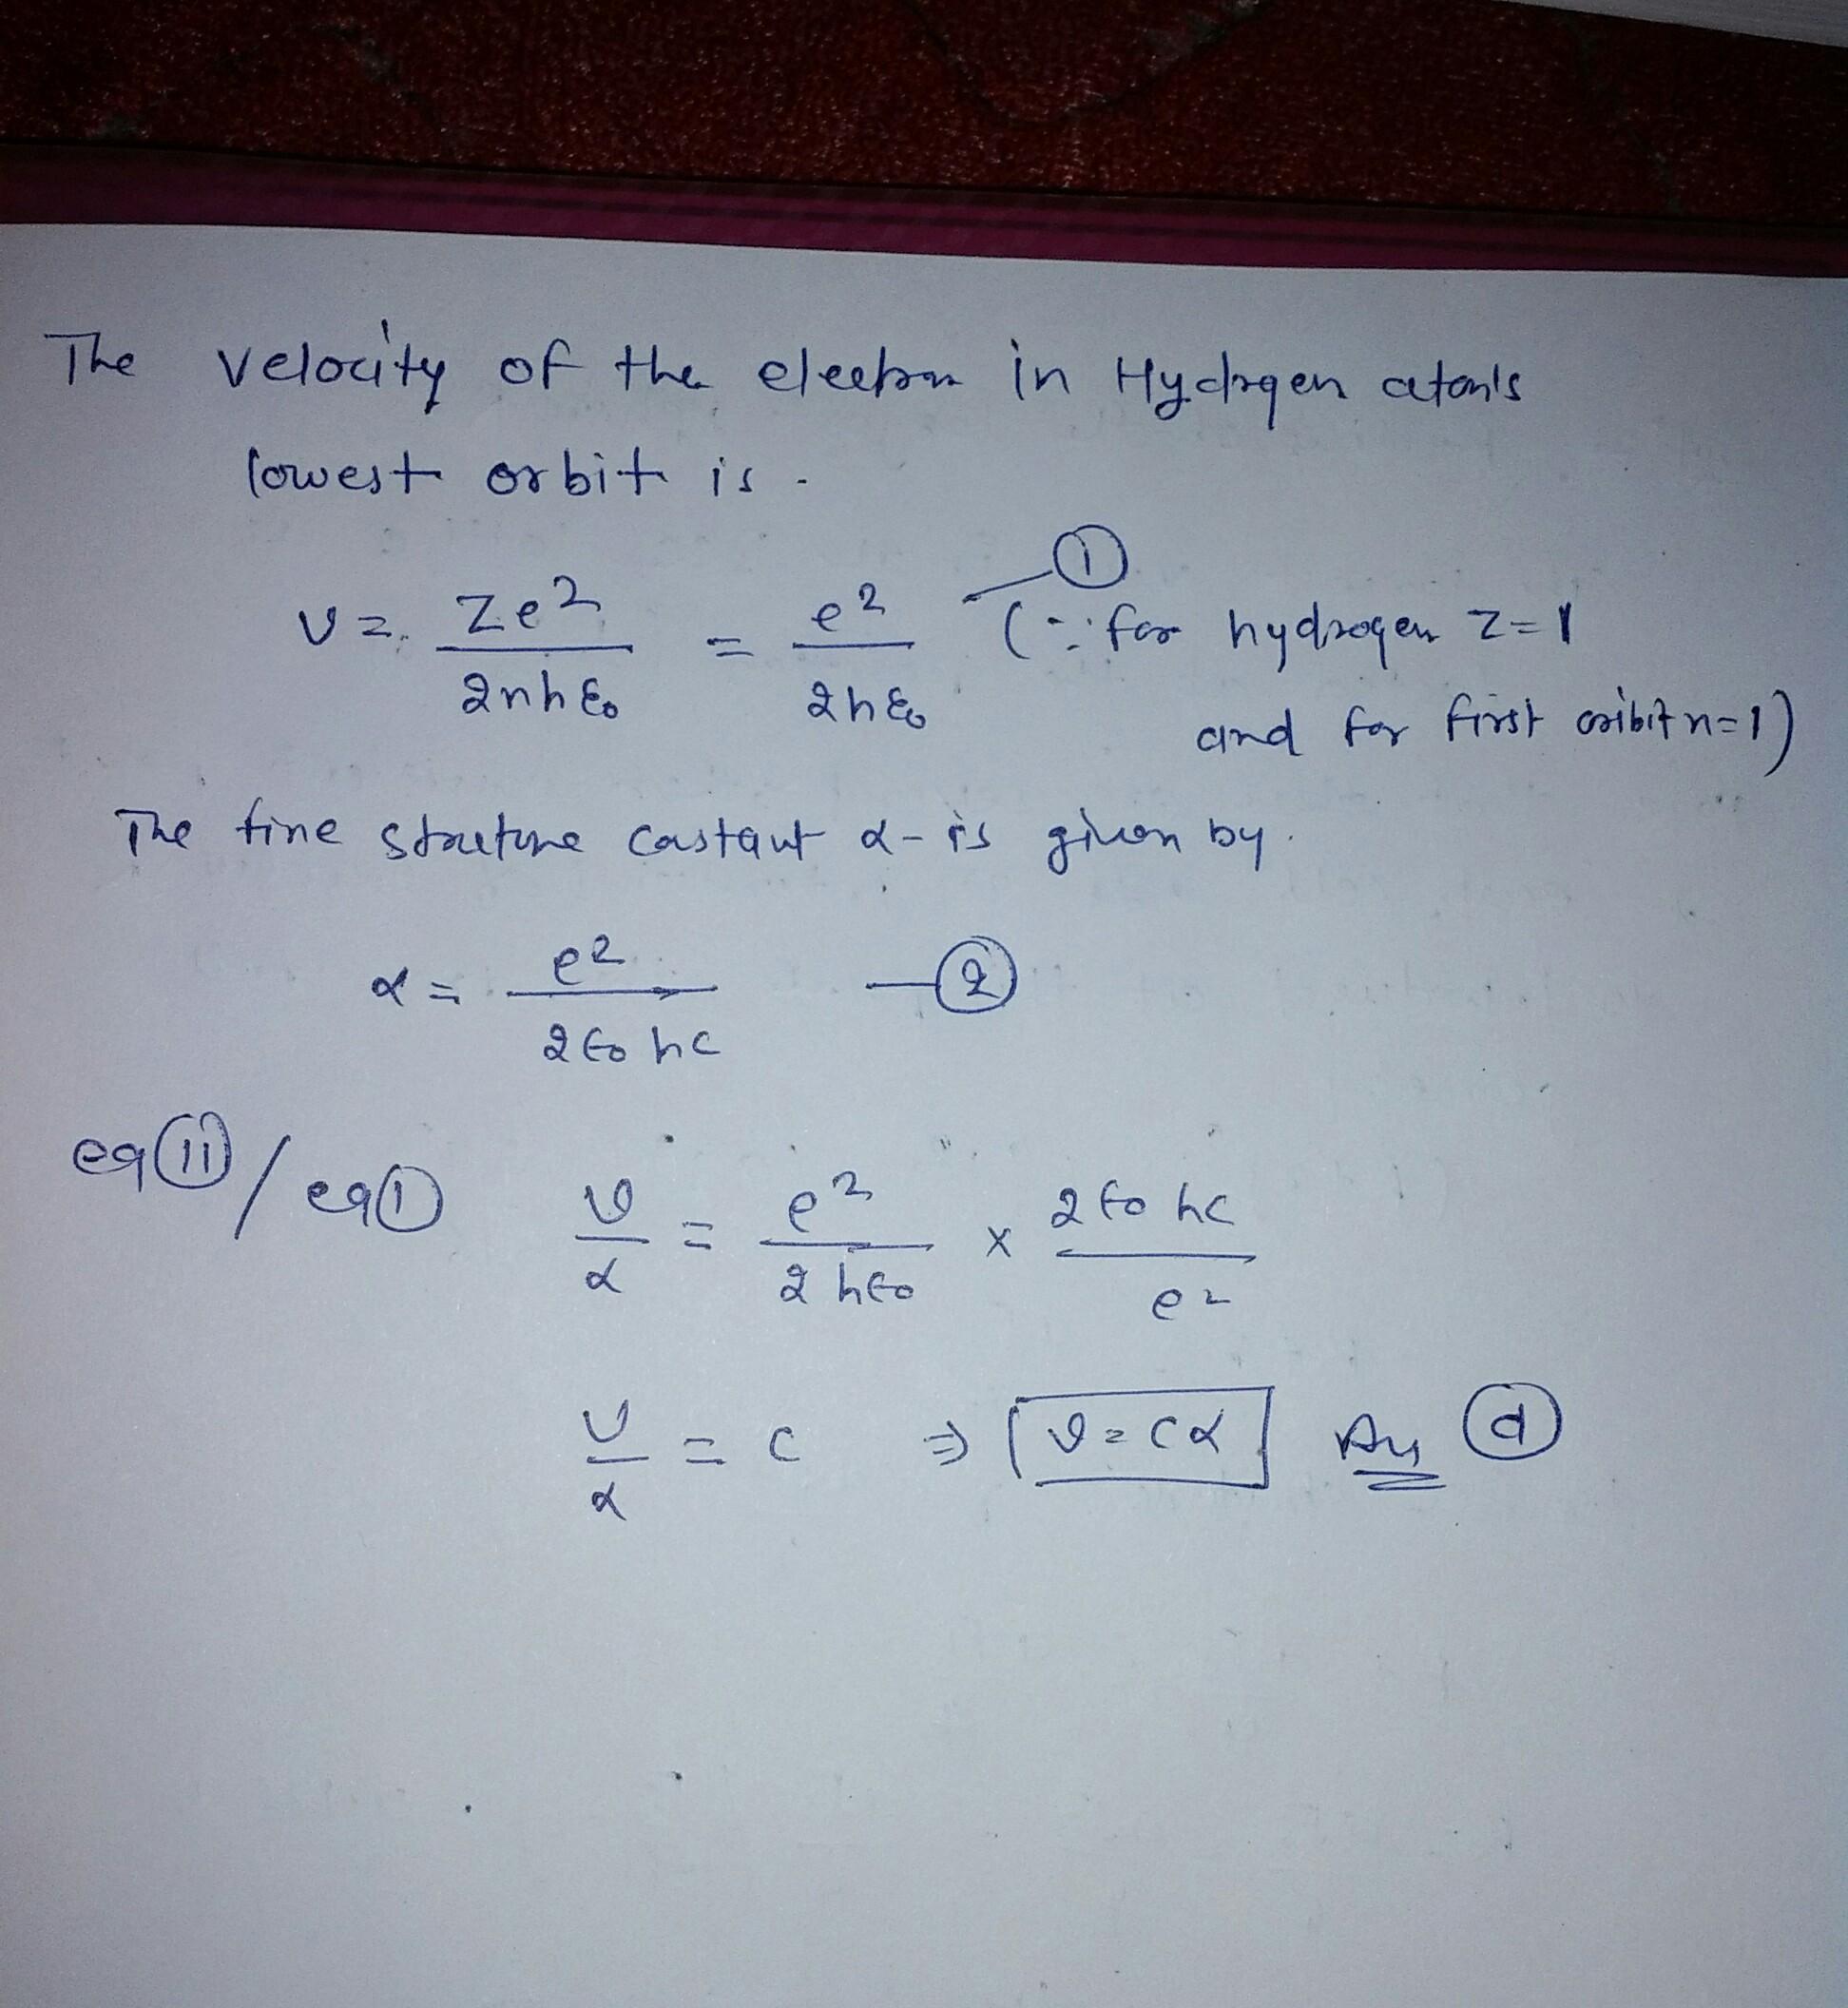 The velocity of the electron in Hydrogen atom's
lowest orbit is.
v = Ze² / 2nhε₀ = e² / 2hε₀ — ① (∵ for hydrogen Z=1
and for first oribit n=1)
The fine structure constant α- is given by.
α = e² / 2ε₀hc — ②
eq ⑪ / eq ① v/α = e² / 2hε₀ × 2ε₀hc / e²
v/α = c ⇒ v = cα Ans ⓓ